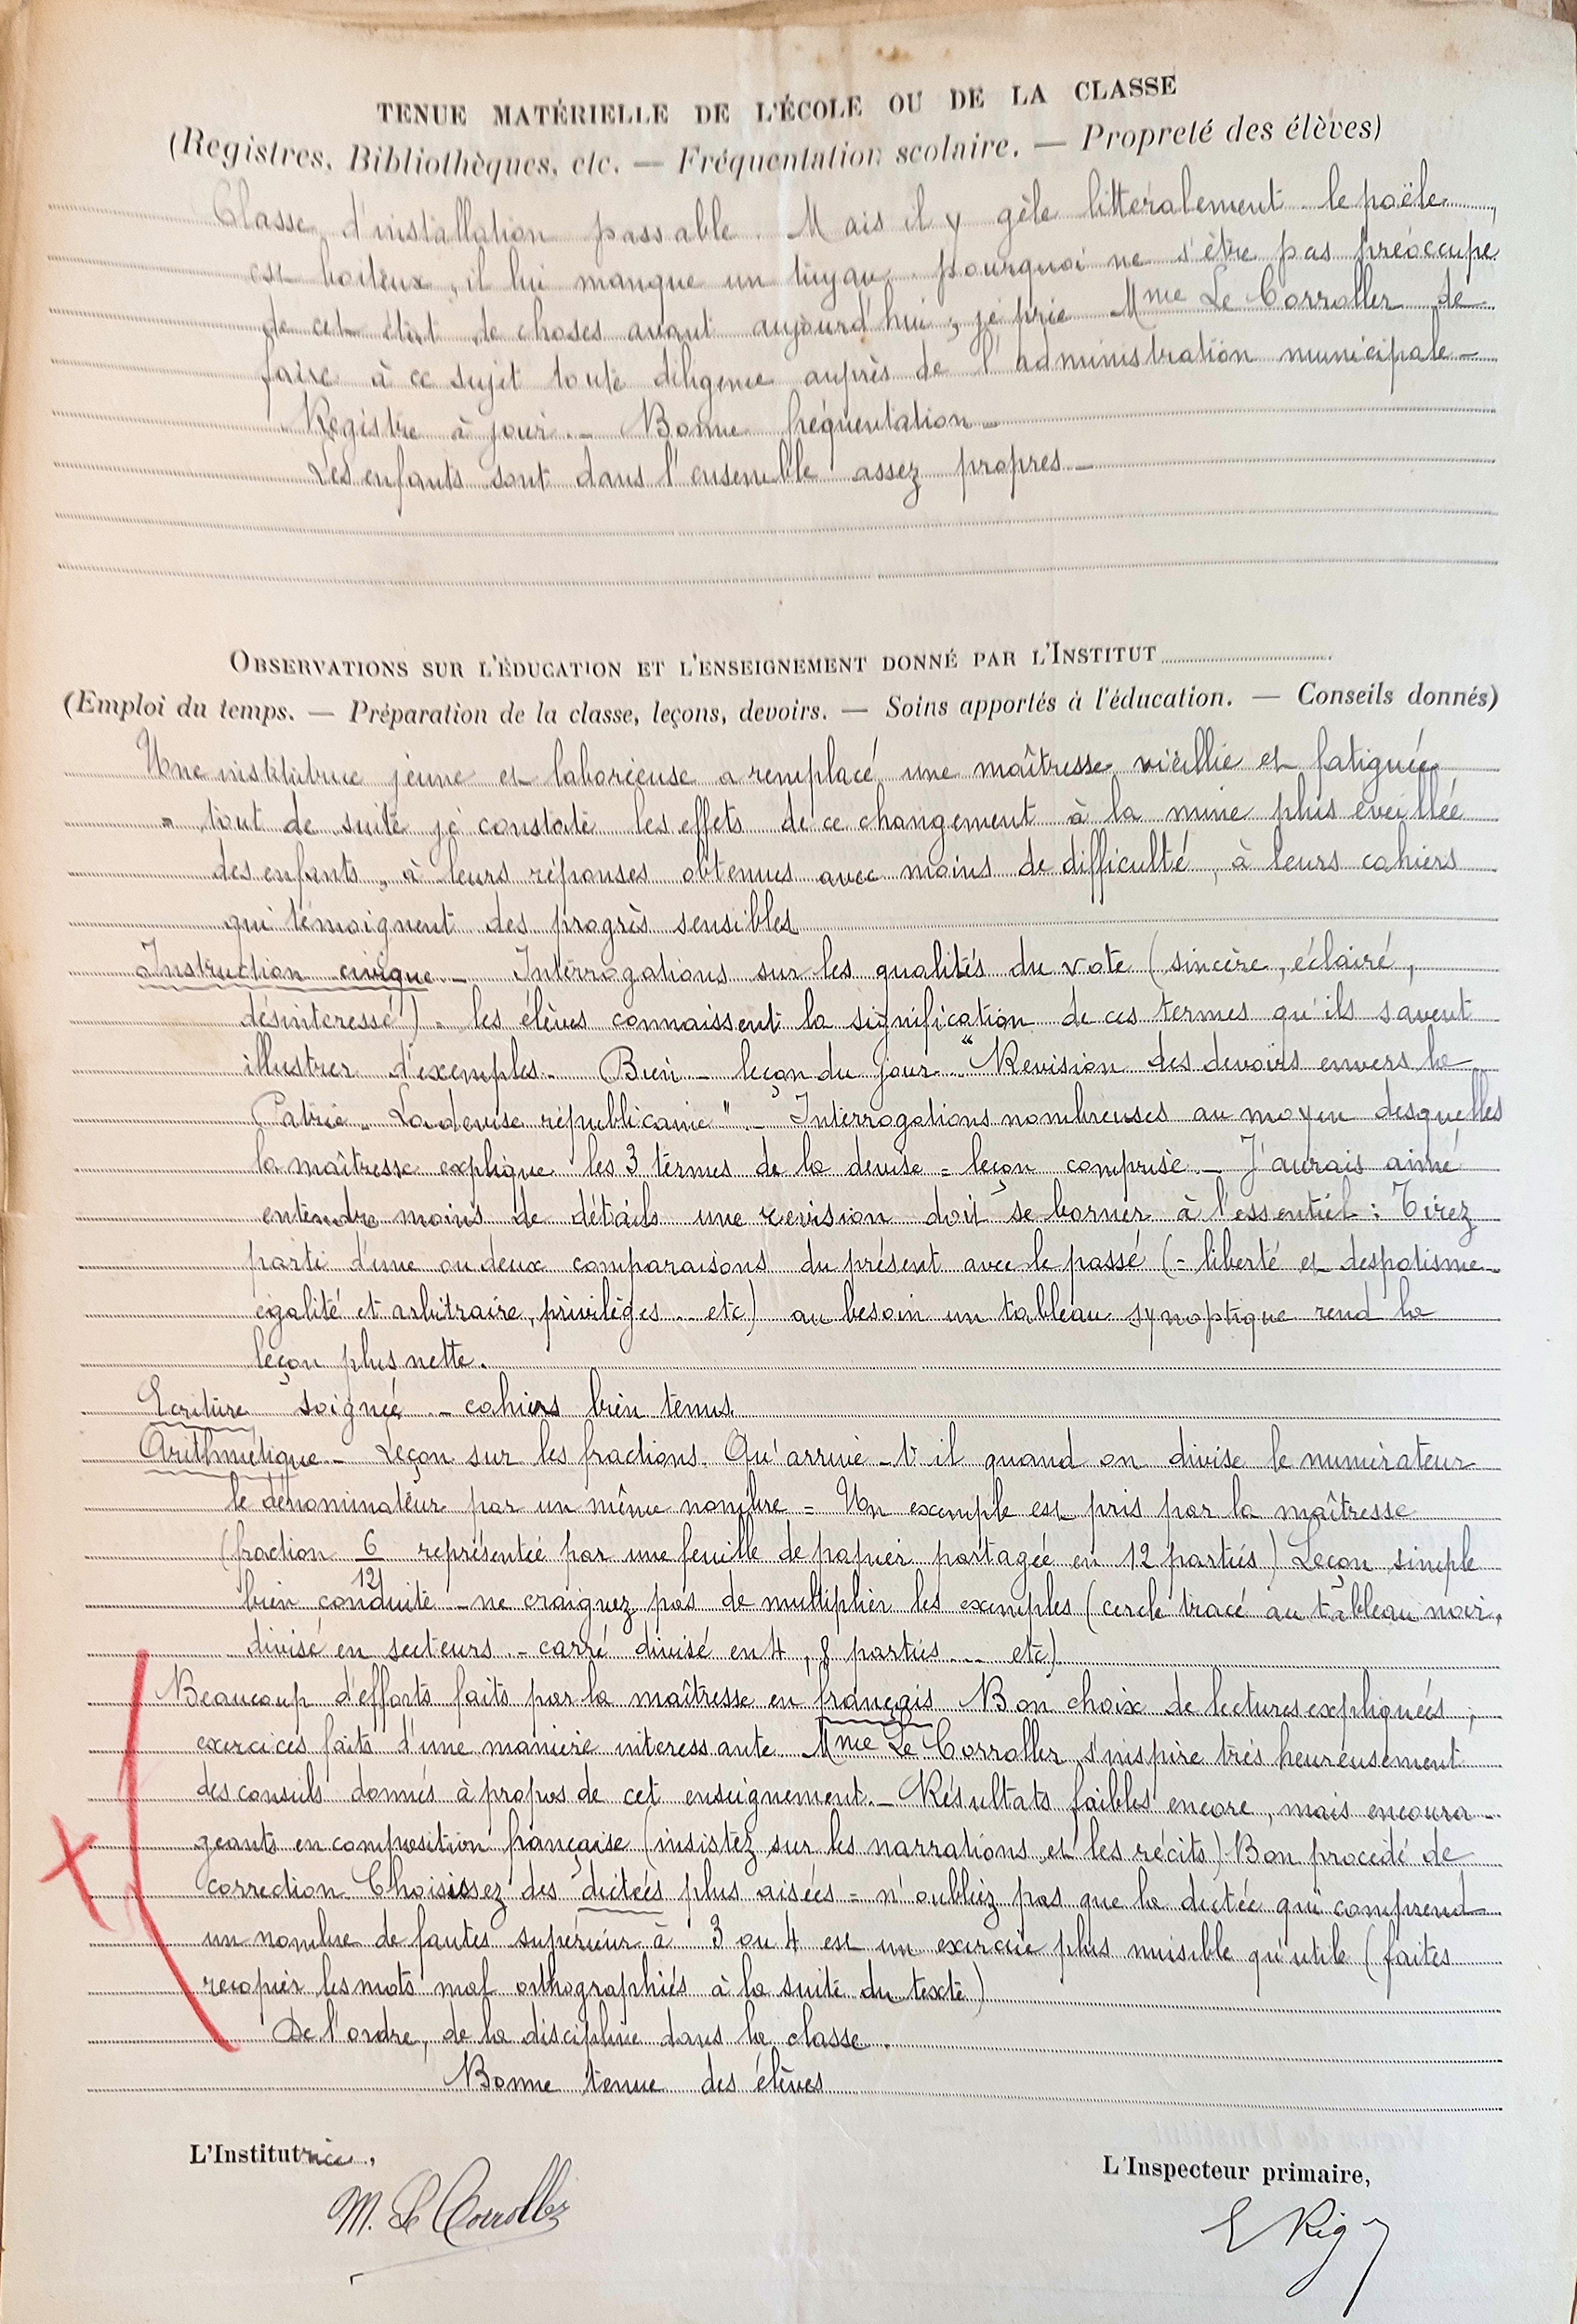 TENUE MATÉRIELLE DE L'ÉCOLE OU DE LA CLASSE
(Registres, Bibliothèques, etc. — Fréquentation scolaire. — Propreté des élèves)
Classe d'installation passable. Mais il y gèle littéralement. le poële
est boiteux, il lui manque un tuyau. pourquoi ne s'être pas préoccupé
de cet état de choses avant aujourd'hui, je prie Mme Le Corroller de
faire à ce sujet toute diligence auprès de l'administration municipale –
Registre à jour. – Bonne fréquentation –
Les enfants sont dans l'ensemble assez propres –
OBSERVATIONS SUR L'ÉDUCATION ET L'ENSEIGNEMENT DONNÉ PAR L'INSTITUT
(Emploi du temps. — Préparation de la classe, leçons, devoirs. — Soins apportés à l'éducation. — Conseils donnés)
Une institutrice jeune et laborieuse a remplacé une maîtresse vieillie et fatiguée
= tout de suite je constate les effets de ce changement à la mine plus éveillée
des enfants, à leurs réponses obtenues avec moins de difficulté, à leurs cahiers
qui témoignent des progrès sensibles
Instruction civique. – Interrogations sur les qualités du vote (sincère, éclairé,
désintéressé) = les élèves connaissent la signification de ces termes qu'ils savent
illustrer d'exemples – Bien – leçon du jour "Revision des devoirs envers la
Patrie. La devise républicaine". – Interrogations nombreuses au moyen desquelles
la maîtresse explique les 3 termes de la devise = leçon comprise – J'aurais aimé
entendre moins de détails une revision doit se borner à l'essentiel : Tirez
parti d'une ou deux comparaisons du présent avec le passé (= liberté et despotisme
égalité et arbitraire, privilèges ... etc) au besoin un tableau synoptique rend la
leçon plus nette.
Ecriture soignée – cahiers bien tenus
Arithmétique – Leçon sur les fractions. Qu'arrive-t-il quand on divise le numérateur
le dénominateur par un même nombre = Un exemple est pris par la maîtresse
(fraction 6/12 représentée par une feuille de papier partagée en 12 parties) Leçon simple
bien conduite – ne craignez pas de multiplier les exemples (cercle tracé au tableau noir,
divisé en secteurs – carré divisé en 4, 8 parties ... etc)
Beaucoup d'efforts faits par la maîtresse en français Bon choix de lectures expliquées ;
exercices faits d'une manière interessante. Mme Le Corroller s'inspire très heureusement
des conseils donnés à propos de cet enseignement. – Résultats faibles encore, mais encoura-
geants en composition française (insistez sur les narrations et les récits) Bon procédé de
correction Choisissez des dictées plus aisées = n'oubliez pas que la dictée qui comprend
un nombre de fautes supérieur à 3 ou 4 est un exercice plus nuisible qu'utile (faites
recopier les mots mal orthographiés à la suite du texte)
De l'ordre, de la discipline dans la classe.
Bonne tenue des élèves
L'Institutrice,
L'Inspecteur primaire,
M. Le Corroller